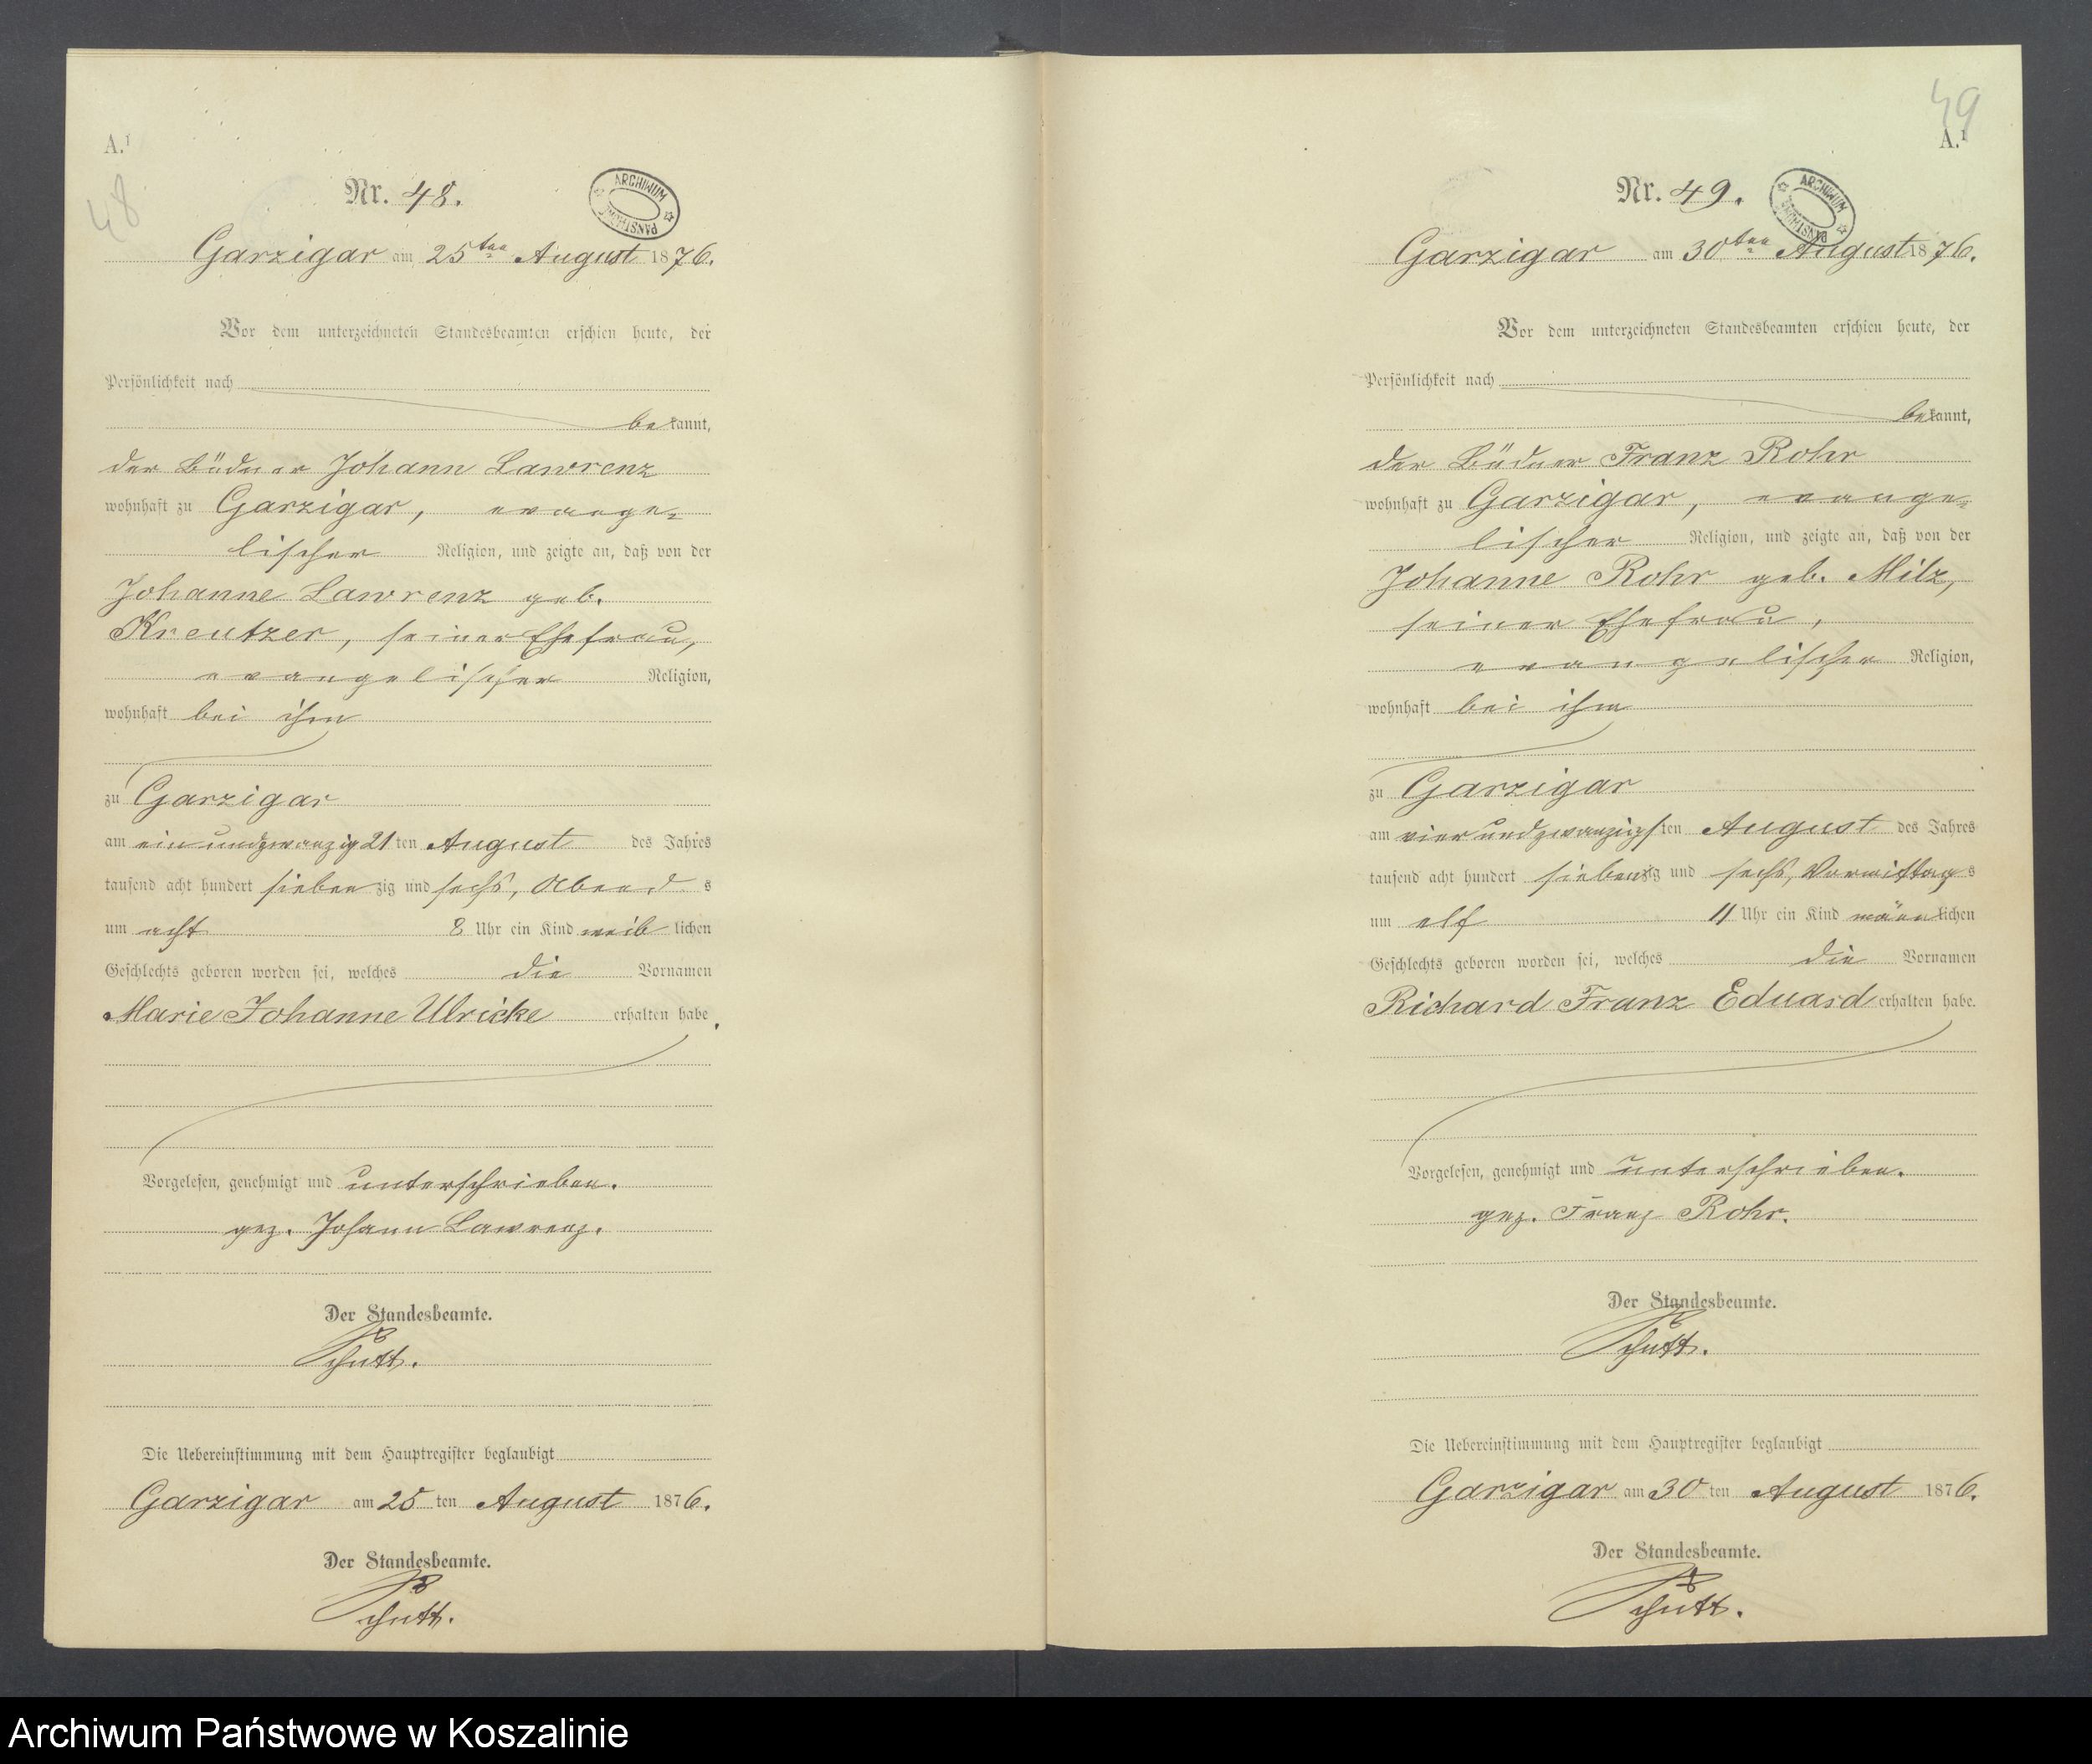 A.¹
48
Nr. 48.
ARCHIWUM
PAŃSTWOWE
Garzigar am 25ten August 1876.
Vor dem unterzeichneten Standesbeamten erschien heute, der
Persönlichkeit nach
bekannt,
der Büdner Johann Lawrenz
wohnhaft zu Garzigar, evange-
lischer Religion, und zeigte an, daß von der
Johanne Lawrenz geb.
Kreutzer, seiner Ehefrau,
evangelischer Religion,
wohnhaft bei ihm
zu Garzigar
am einundzwanzig 21 ten August des Jahres
tausend acht hundert siebenzig und sechs, Abends
um acht 8 Uhr ein Kind weiblichen
Geschlechts geboren worden sei, welches die Vornamen
Marie Johanne Ulricke erhalten habe.
Vorgelesen, genehmigt und unterschrieben.
gez. Johann Lawrenz.
Der Standesbeamte.
Schütt.
Die Uebereinstimmung mit dem Hauptregister beglaubigt
Garzigar am 25 ten August 1876.
Der Standesbeamte.
Schütt.
49
A.¹
Nr. 49.
ARCHIWUM
PAŃSTWOWE
Garzigar am 30ten August 1876.
Vor dem unterzeichneten Standesbeamten erschien heute, der
Persönlichkeit nach
bekannt,
der Büdner Franz Rohr
wohnhaft zu Garzigar, evange-
lischer Religion, und zeigte an, daß von der
Johanne Rohr geb. Milz,
seiner Ehefrau,
evangelischer Religion,
wohnhaft bei ihm
zu Garzigar
am vierundzwanzigsten August des Jahres
tausend acht hundert siebenzig und sechs, Vormittags
um elf 11 Uhr ein Kind männlichen
Geschlechts geboren worden sei, welches die Vornamen
Richard Franz Eduard erhalten habe.
Vorgelesen, genehmigt und unterschrieben.
gez. Franz Rohr.
Der Standesbeamte.
Schütt.
Die Uebereinstimmung mit dem Hauptregister beglaubigt
Garzigar am 30 ten August 1876.
Der Standesbeamte.
Schütt.
Archiwum Państwowe w Koszalinie